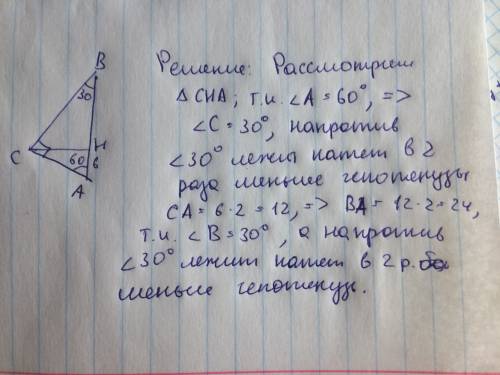 B
30
C
H
60
6
A
Решение: Рассмотрим
△CHA; т.к. ∠A = 60°, =>
∠C = 30°, напротив
∠30° лежит катет в 2
раза меньше гепотенузы
CA = 6·2 = 12, => BA = 12·2 = 24,
т.к. ∠B = 30°, а напротив
∠30° лежит катет в 2 р.
меньше гепотенузы.